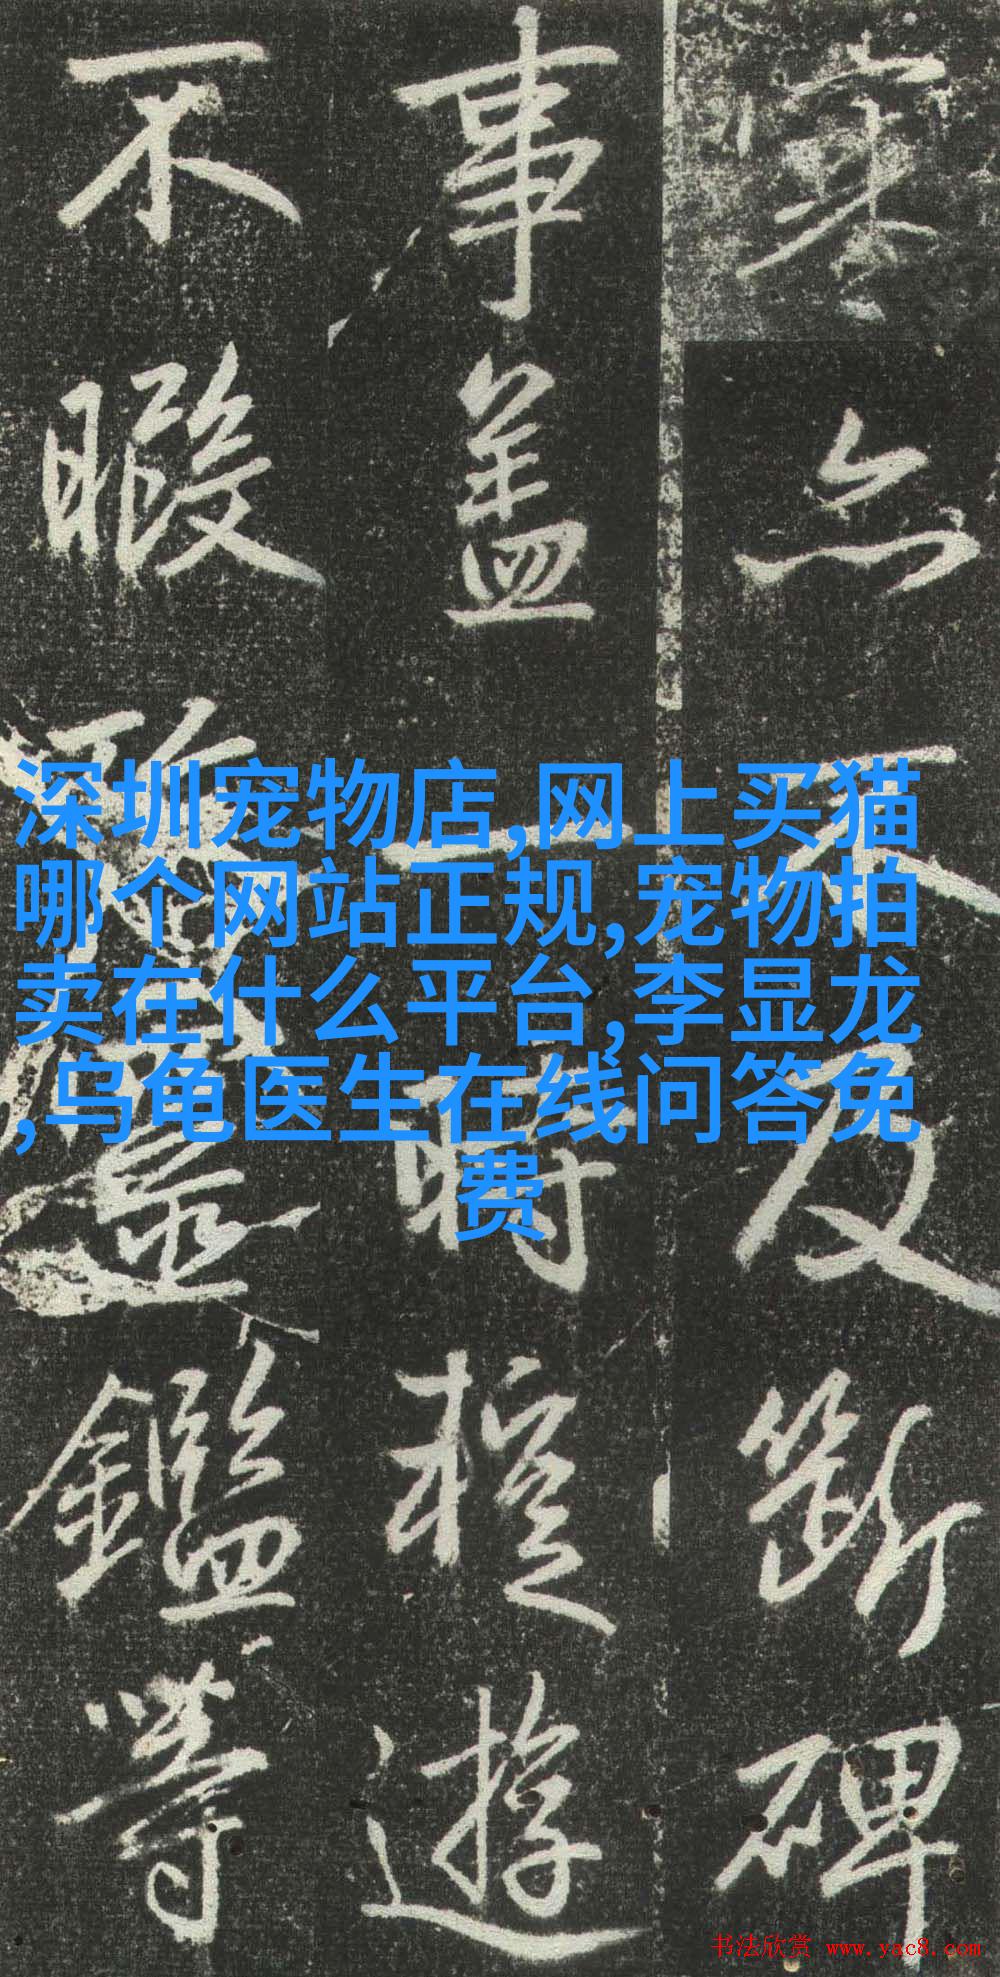 深圳宠物店,网上买猫
哪个网站正规,宠物拍
卖在什么平台,李显龙
,乌龟医生在线问答免
费
亦不及斷碑
事盖一時遊
不暇鑑等
书法欣赏 www.yac8.com